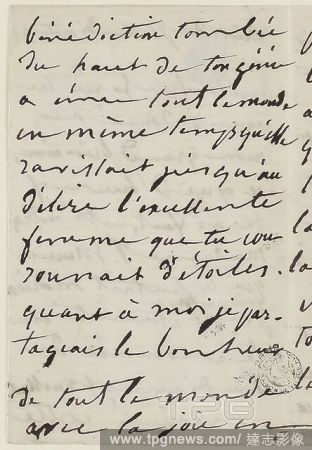 bénédiction tombée
du haut de ton génie
a ému tout le monde
en même temps qu'elle
ravissait jusqu'au
délire l'excellente
femme que tu cou
ronnait d'étoiles.
quant à moi je par-
tageais le bonheur
de tout le monde
avec la joie en
TPG
www.tpgnews.com/達志影像